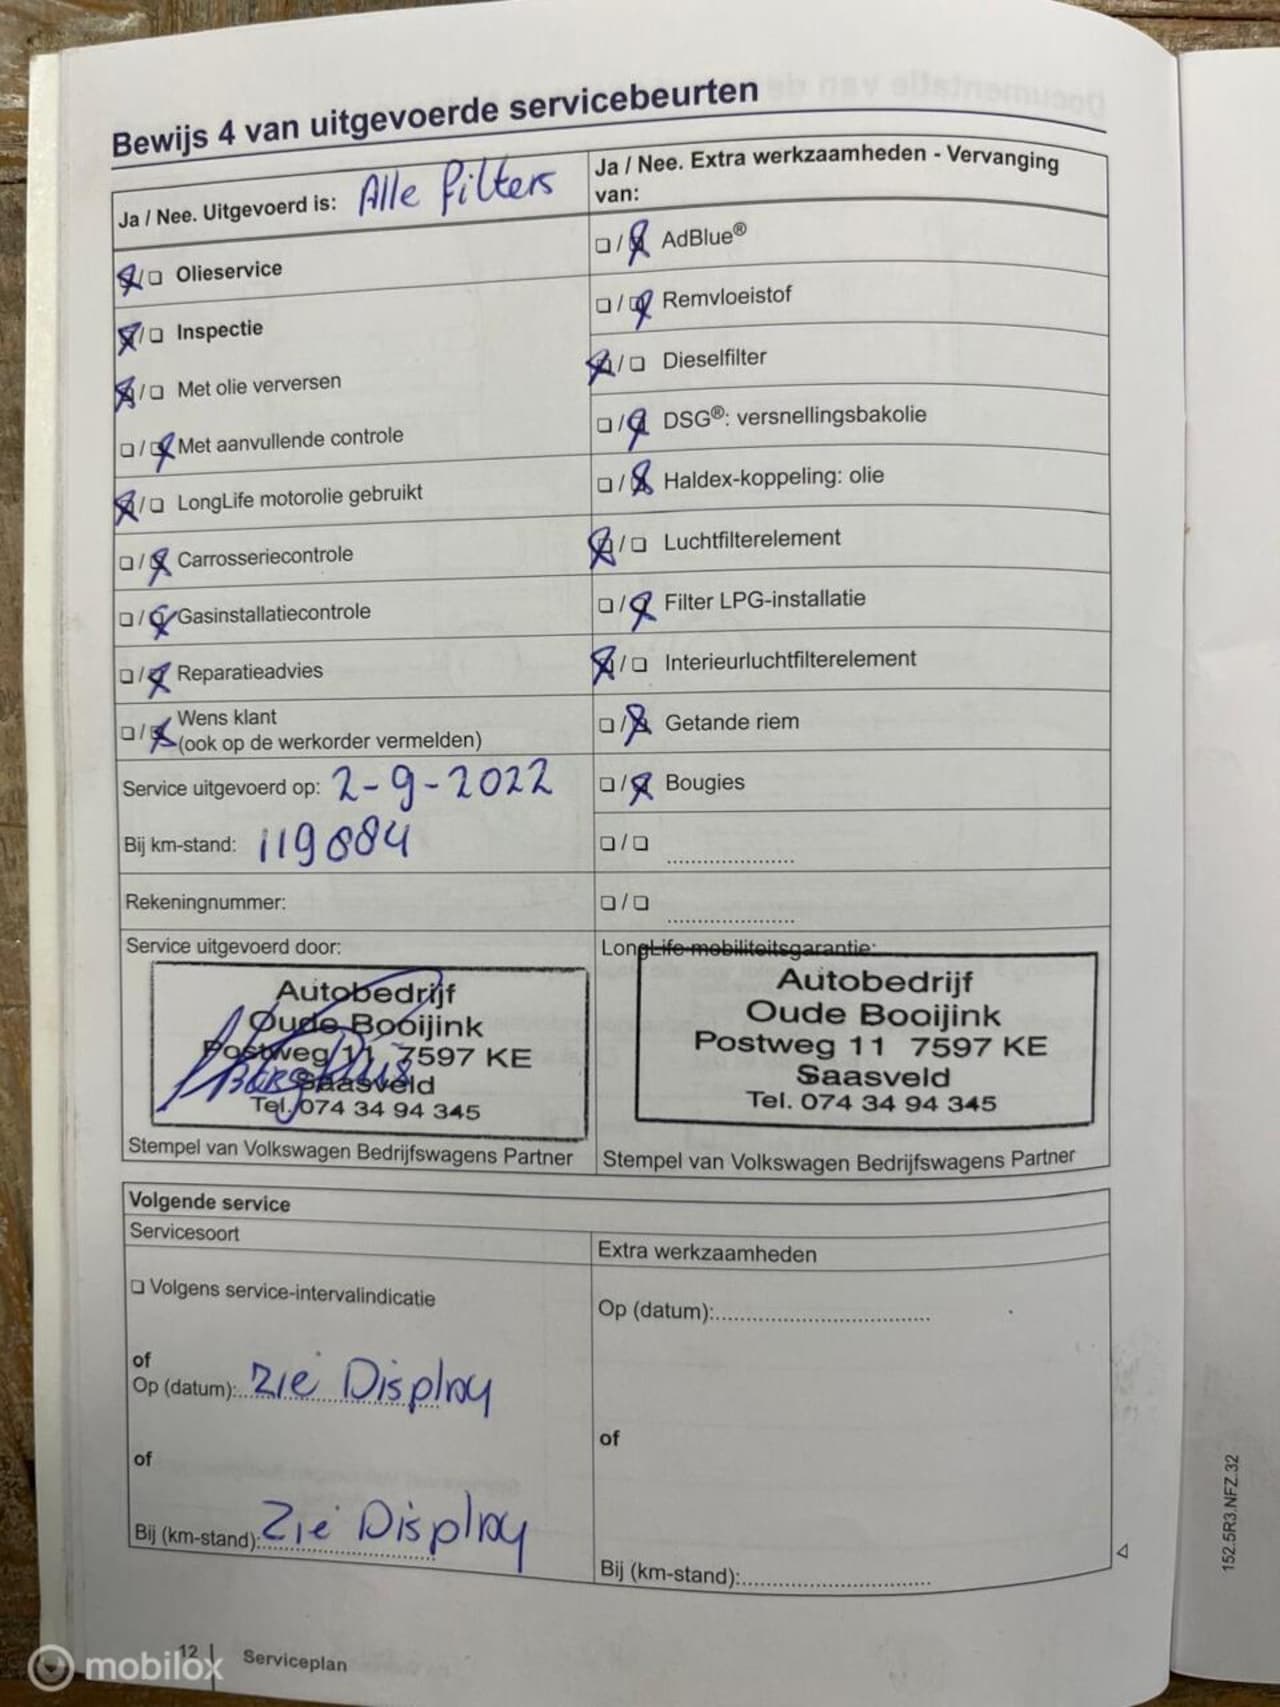 Bewijs 4 van uitgevoerde servicebeurten
Ja / Nee. Uitgevoerd is: Alle filters
Olieservice
Inspectie
Met olie verversen
Met aanvullende controle
LongLife motorolie gebruikt
Carrosseriecontrole
Gasinstallatiecontrole
Reparatieadvies
Wens klant
(ook op de werkorder vermelden)
Service uitgevoerd op: 2-9-2022
Bij km-stand: 119884
Rekeningnummer:
Service uitgevoerd door:
Autobedrijf
Oude Booijink
Postweg 11 7597 KE
Saasveld
Tel. 074 34 94 345
Stempel van Volkswagen Bedrijfswagens Partner
Ja / Nee. Extra werkzaamheden - Vervanging
van:
AdBlue®
Remvloeistof
Dieselfilter
DSG®: versnellingsbakolie
Haldex-koppeling: olie
Luchtfilterelement
Filter LPG-installatie
Interieurluchtfilterelement
Getande riem
Bougies
LongLife mobiliteitsgarantie:
Autobedrijf
Oude Booijink
Postweg 11 7597 KE
Saasveld
Tel. 074 34 94 345
Stempel van Volkswagen Bedrijfswagens Partner
Volgende service
Servicesoort
Volgens service-intervalindicatie
of
Op (datum): zie Display
of
Bij (km-stand): Zie Display
Extra werkzaamheden
Op (datum):
of
Bij (km-stand):
152.5R3.NFZ.32
12 Serviceplan
mobilox